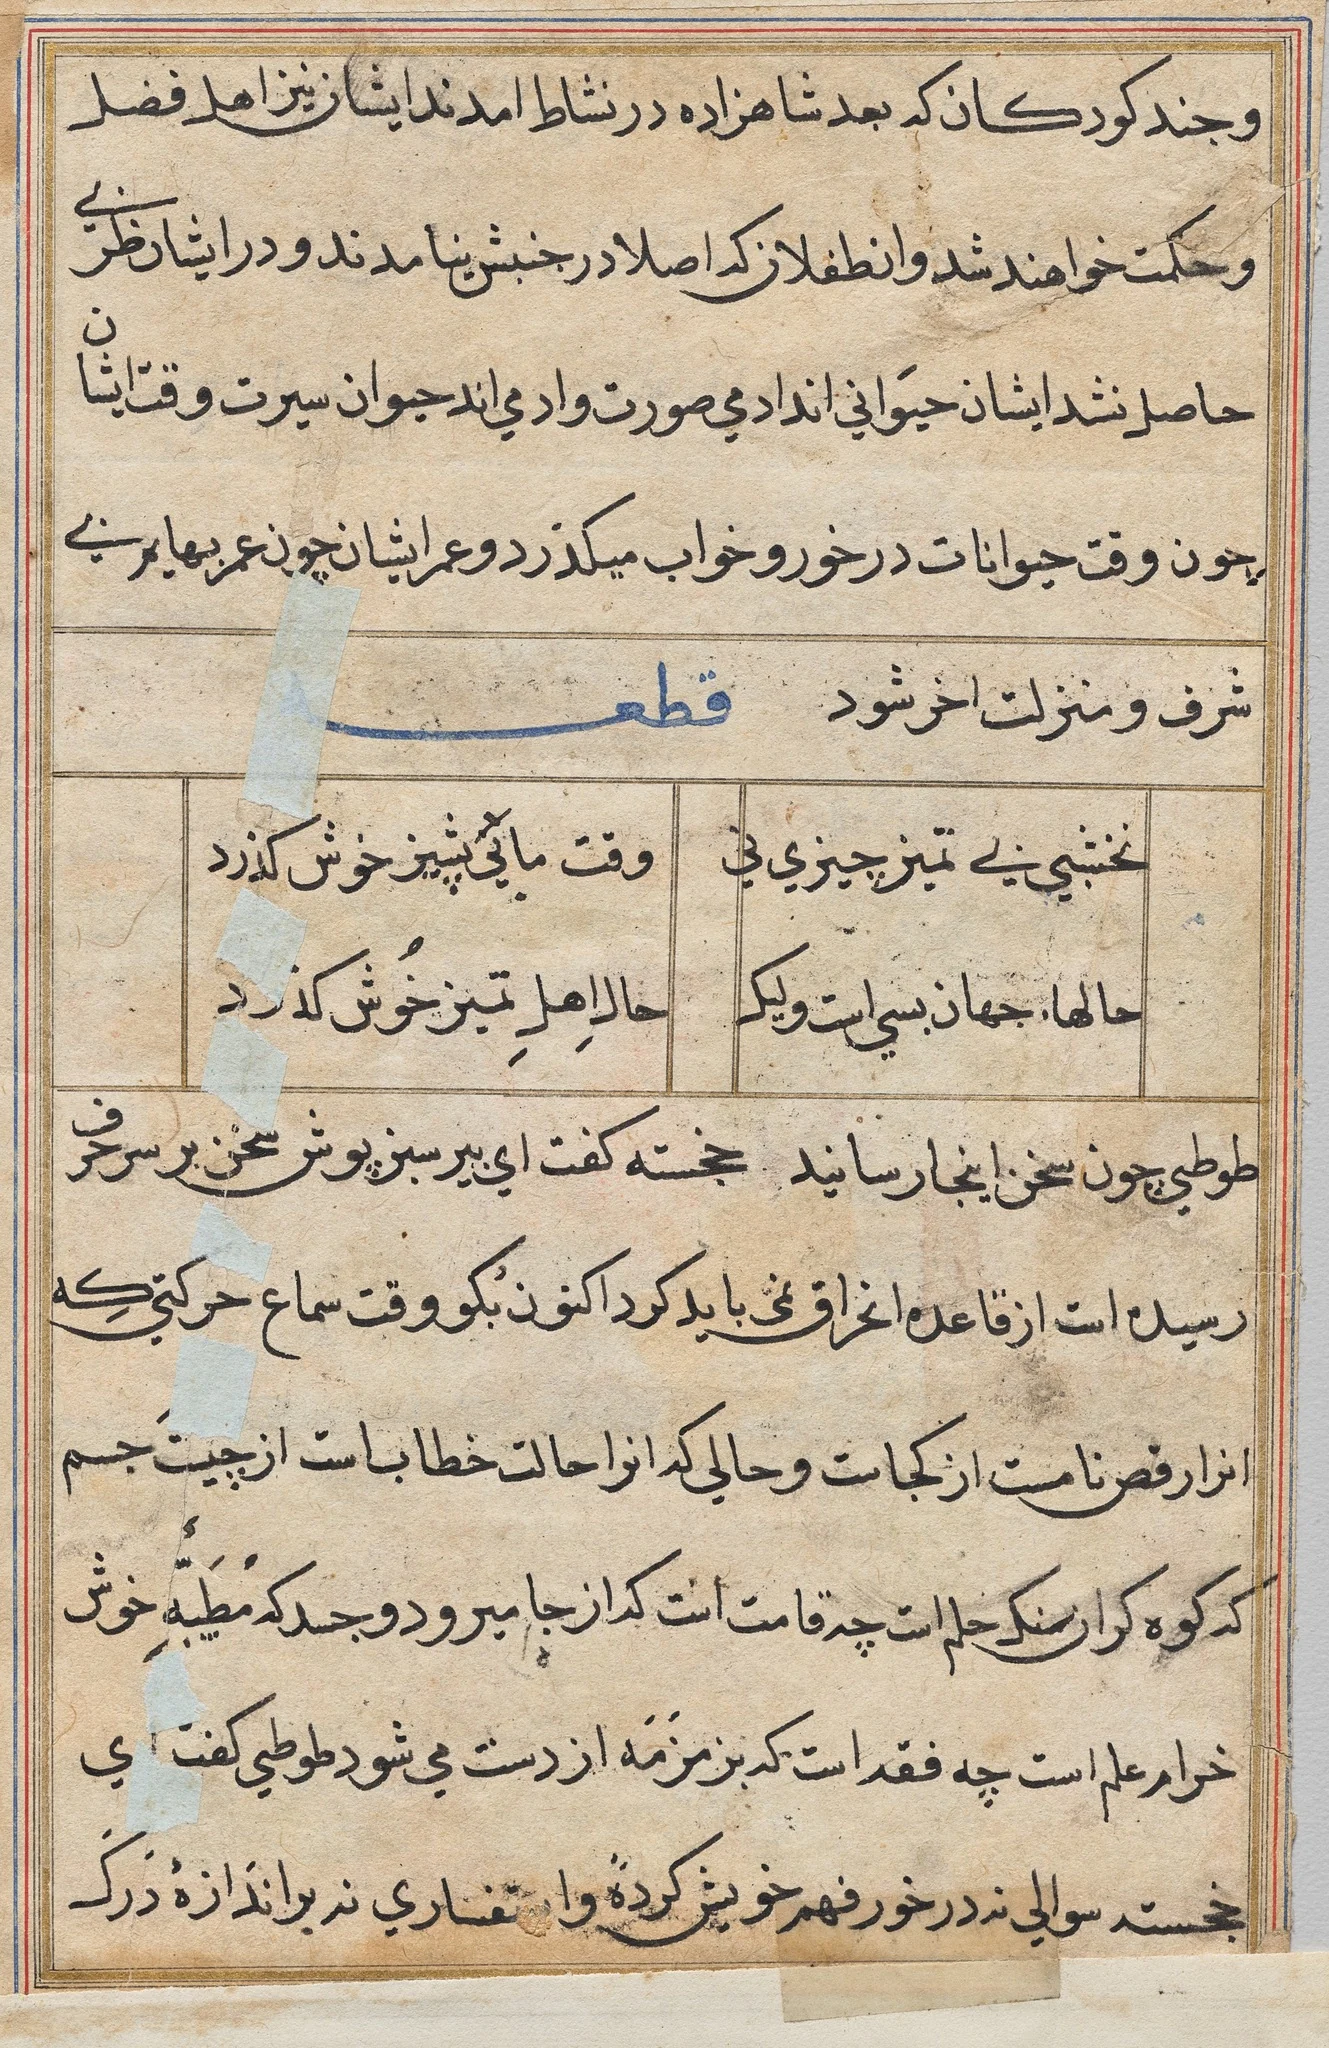 وجند کودکان که بعد شاهزاده در نشاط امدند ایشان نیز اهل فضل
وحکمت خواهند شد وانطفلان که اصلا در خبنش نیامدند و در ایشان طربی
حاصل نشد ایشان حیَوانی اند ادمی صورت وادمی اند حیوان سیرت وقت ایشان
چون وقت حیوانات در خور و خواب میکذرد و عمر ایشان چون عمر بهایم بی
شرف و منزلت اخر شود قطعه
نخشبی بی تمیز چیزی نی وقت با پشیز خوش کذرد
حالهاء جهان بسی است ولیک حالِ اهلِ تمیز خُوش کذرد
طوطی چون سخن اینجا رسانید خجسته کفت ای پیر سبز پوش سخن بر سر حرف
رسیده است از قاعده انحراق نمی باید کرد اکنون بُکو وقت سماع حرکتی کِه
انرا رقص نامست از کجاست و حالی که انرا حالت خطاب است از چیتَ جسم
که کوه کران سنک حلم است چه قامت است که از جا میرود و جسد که مُطَیَّهِ خوش
خرام علم است چه فقد است که بزمزمَه از دست می شود طوطی کفت ای
خجسته سوالی نه در خور فهم خویش کردهٔ واستفساری نه بر اندَازهٔ دَرَک